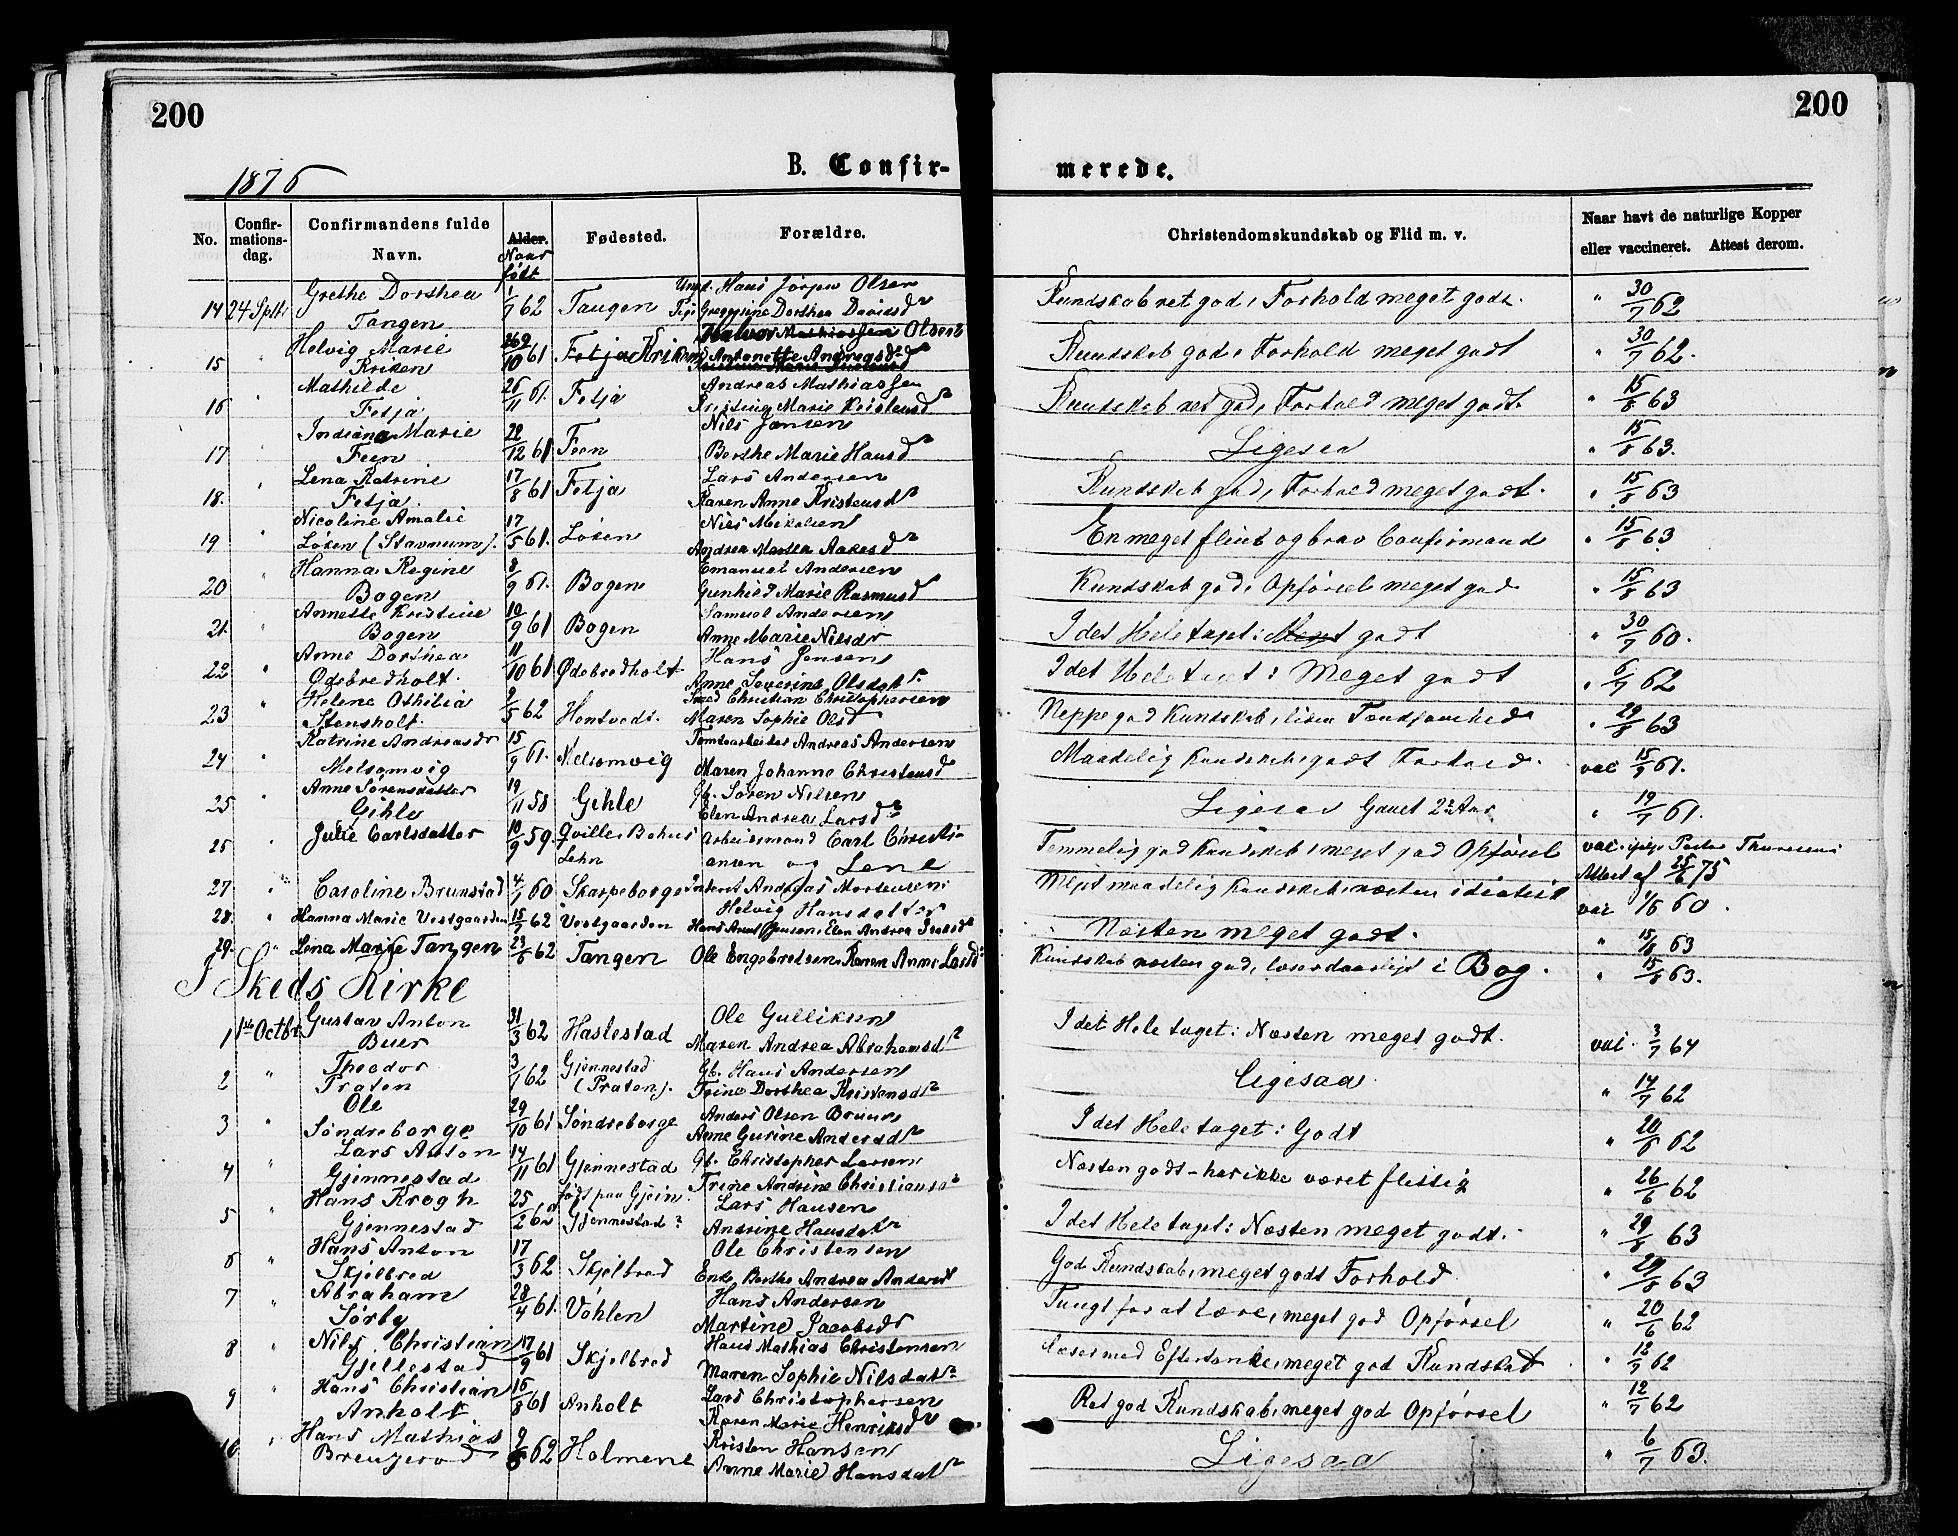 200
200
1876
B. Confir-
merede.
No.
Confir-
mations-
dag.
Confirmandens fulde
Navn.
Alder.
Naar
født
Fødested.
Forældre.
Christendomskundskab og Flid m. v.
Naar havt de naturlige Kopper
eller vaccineret. Attest derom.
14 24 Septbr Grethe Dorthea Tangen 1/7 62 Tangen Hans Jørgen Olsen Dorthea Davidsdr Kundskab ret god, Forhold meget godt. " 30/7 62
15 " Helvig Marie Kriken /10 61 Fetja Kriken Olsen Antonette Andreasdr Kundskab god, Forhold meget godt " 30/7 62.
16 " Mathilde Fetja 26/11 61. Fetja Andreas Mathiassen Kristine Marie Kristensdr Kundskab ret god, Forhold meget godt. " 15/8 63
17 " Indiana Marie Feen 22/12 61 Feen Nils Jensen Berthe Marie Hansdr Ligesaa " 15/8 63.
18. " Lena Katrine Fetja 17/8 61 Fetja Lars Andersen Karen Anne Kristensdr Kundskab god, Forhold meget godt. " 15/8 63
19 " Nicoline Amalie Løken (Stavnum). 17/5 61. Løken Nils Mikelsen Andrea Aakesdr En meget flink og brav Confirmand " 15/8 63
20 " Hanna Regine Bogen 8/9 61. Bogen Emanuel Andersen Gunhild Marie Rasmusd Kundskab god, Opførsel meget god " 15/8 63
21. " Annette Kristine Bogen 10/9 61 Bogen Samuel Andersen Anne Marie Nilsdr I det Hele taget: Meget godt " 30/7 60.
22 " Anne Dorthea Ødebredholt. 11/10 61 Ødebredholt Hans Jensen Anne Severine Olsdatr I det Hele taget: Meget godt " 6/7 62
23 " Helene Othilia Stensholt. 2/5 62 Hentvedt. Christian Christophersen Maren Sophie Olsd Neppe god Kundskab, liden " 29/8 63
24 " Katrine Andreasdr Melsomvig 15/9 61. Melsomvig Tomtearbeider Andreas Andersen Maren Johanne Christensd Maadelig Kundskab, godt Forhold. vac 15/9 61.
25 " Anne Sørensdatter Gihle 19/11 58 Gihle Gb. Søren Nilsen Elen Andrea Larsdr Ligesaa Gaaet 2 Aar " 19/7 61.
25 " Julie Carlsdatter 10/9 59. Qville, Bahus Lehn Arbeidsmand Carl Christiansen og Lene Temmelig god Kundskab, meget god Opførsel vac. Pastor Attest af 25/6 75
27 " Caroline Brunstad 4/1 60 Skarpeborge Inderst Andreas Mortensen Helvig Hansdatter Meget maadelig Kundskab, næsten idiotisk vac 1/6 60.
28. " Hanna Marie Vestgaarden 15/7 62 Vestgaarden Hans Jensen, Elen Andrea Næsten meget godt. " 15/8 63
29. " Lena Marie Tangen 23/6 62 Tangen Ole Engebretsen, Karen Anne Larsdr Kundskab næsten god, læser daarligt i Bog. " 15/8 63.
I Skeds Kirke
1 1ste Octbr Gustav Anton Buer 31/3 62 Haslestad Ole Gulliksen Maren Andrea Abrahamsdr I det Hele taget: Næsten meget godt. vac. 3/7 64
2 " Theodor Praten 3/1 62 Gjennestad (Praten). Gb. Hans Andersen Trine Dorthea Kristensdr Ligesaa " 14/7 62
3 " Ole Søndreborge 29/10 61 Søndreborge Anders Olsen Bruun Anne Gurine Andersdr I det Hele taget: Godt " 20/6 62
4 " Lars Anton Gjennestad 14/11 61 Gjennestad Gb. Christopher Larsen Trine Andrine Christiansdr Næsten godt – har ikke været flittig " 26/6 62
5 " Hans Krogh Gjennestad 25/2 62 født paa Gjein. Gjennestad? Lars Hansen Andrine Hansdatr I det Hele taget: Næsten meget godt. " 29/8 63
6 " Hans Anton Skjelbred 17/3 62 Skjelbred Ole Christensen Enke Berthe Andrea Andersd God Kundskab, meget godt Forhold " 29/8 63
7 " Abraham Sørby 28/4 61. Vøhlen Hans Andersen Martine Jacobsdr Tungt for at lære, meget god Opførsel " 20/6 62
8 " Nils Christian Gjellestad 17/9 61 Skjelbred Hans Mathias Christensen Maren Sophie Nilsdatr Læser med Eftertanke, meget god Kundskab " 12/7 62
9 " Hans Christian Anholt 16/8 61 Anholt Lars Christophersen Karen Marie Henriksdr Ret god Kundskab, meget god Opførsel " 12/7 62
10 " Hans Mathias 9/6 62 Holmene Kristen Hansen Anne Marie Hansdatr Ligesaa " 6/7 63.